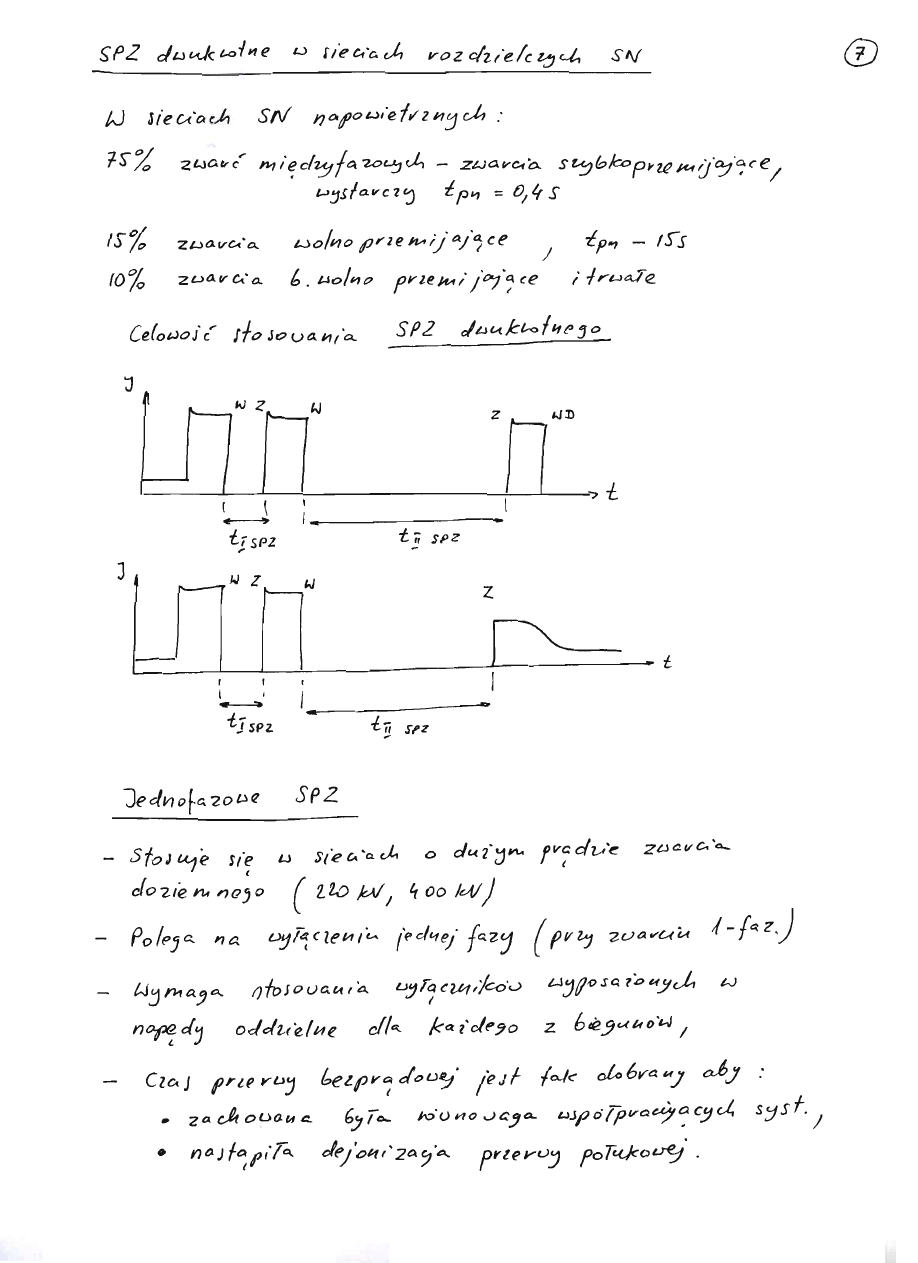 SPZ dwukrotne w sieciach rozdzielczych SN
7
W sieciach SN napowietrznych :
75% zwarć międzyfazowych – zwarcia szybkoprzemijające,
wystarczy tpn = 0,4 s
15% zwarcia wolno przemijające , tpn – 15s
10% zwarcia b. wolno przemijające i trwałe
Celowość stosowania SPZ dwukrotnego
J
W Z W Z WD
t
tI SPZ tII SPZ
J
W Z W Z
t
tI SPZ tII SPZ
Jednofazowe SPZ
– Stosuje się w sieciach o dużym prądzie zwarcia
doziemnego (220 kV, 400 kV)
– Polega na wyłączeniu jednej fazy (przy zwarciu 1-faz.)
– Wymaga stosowania wyłączników wyposażonych w
napędy oddzielne dla każdego z biegunów,
– Czas przerwy bezprądowej jest tak dobrany aby :
• zachowana była równowaga współpracujących syst.,
• nastąpiła dejonizacja przerwy połukowej.